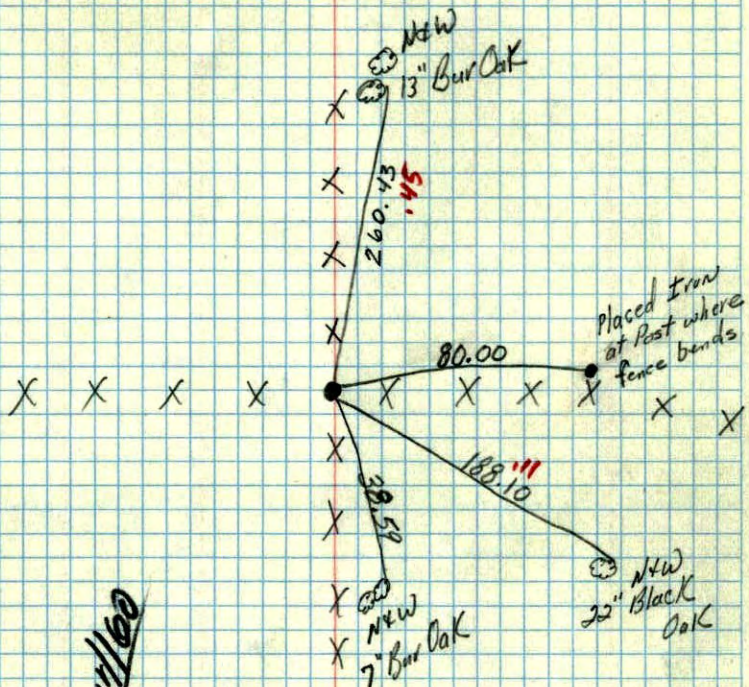 N&W
13" Bur Oak
260.43
.45
Placed Iron
at Post where
fence bends
80.00
188.10
"'
38.59
N&W
22" Black
Oak
N&W
7" Bur Oak